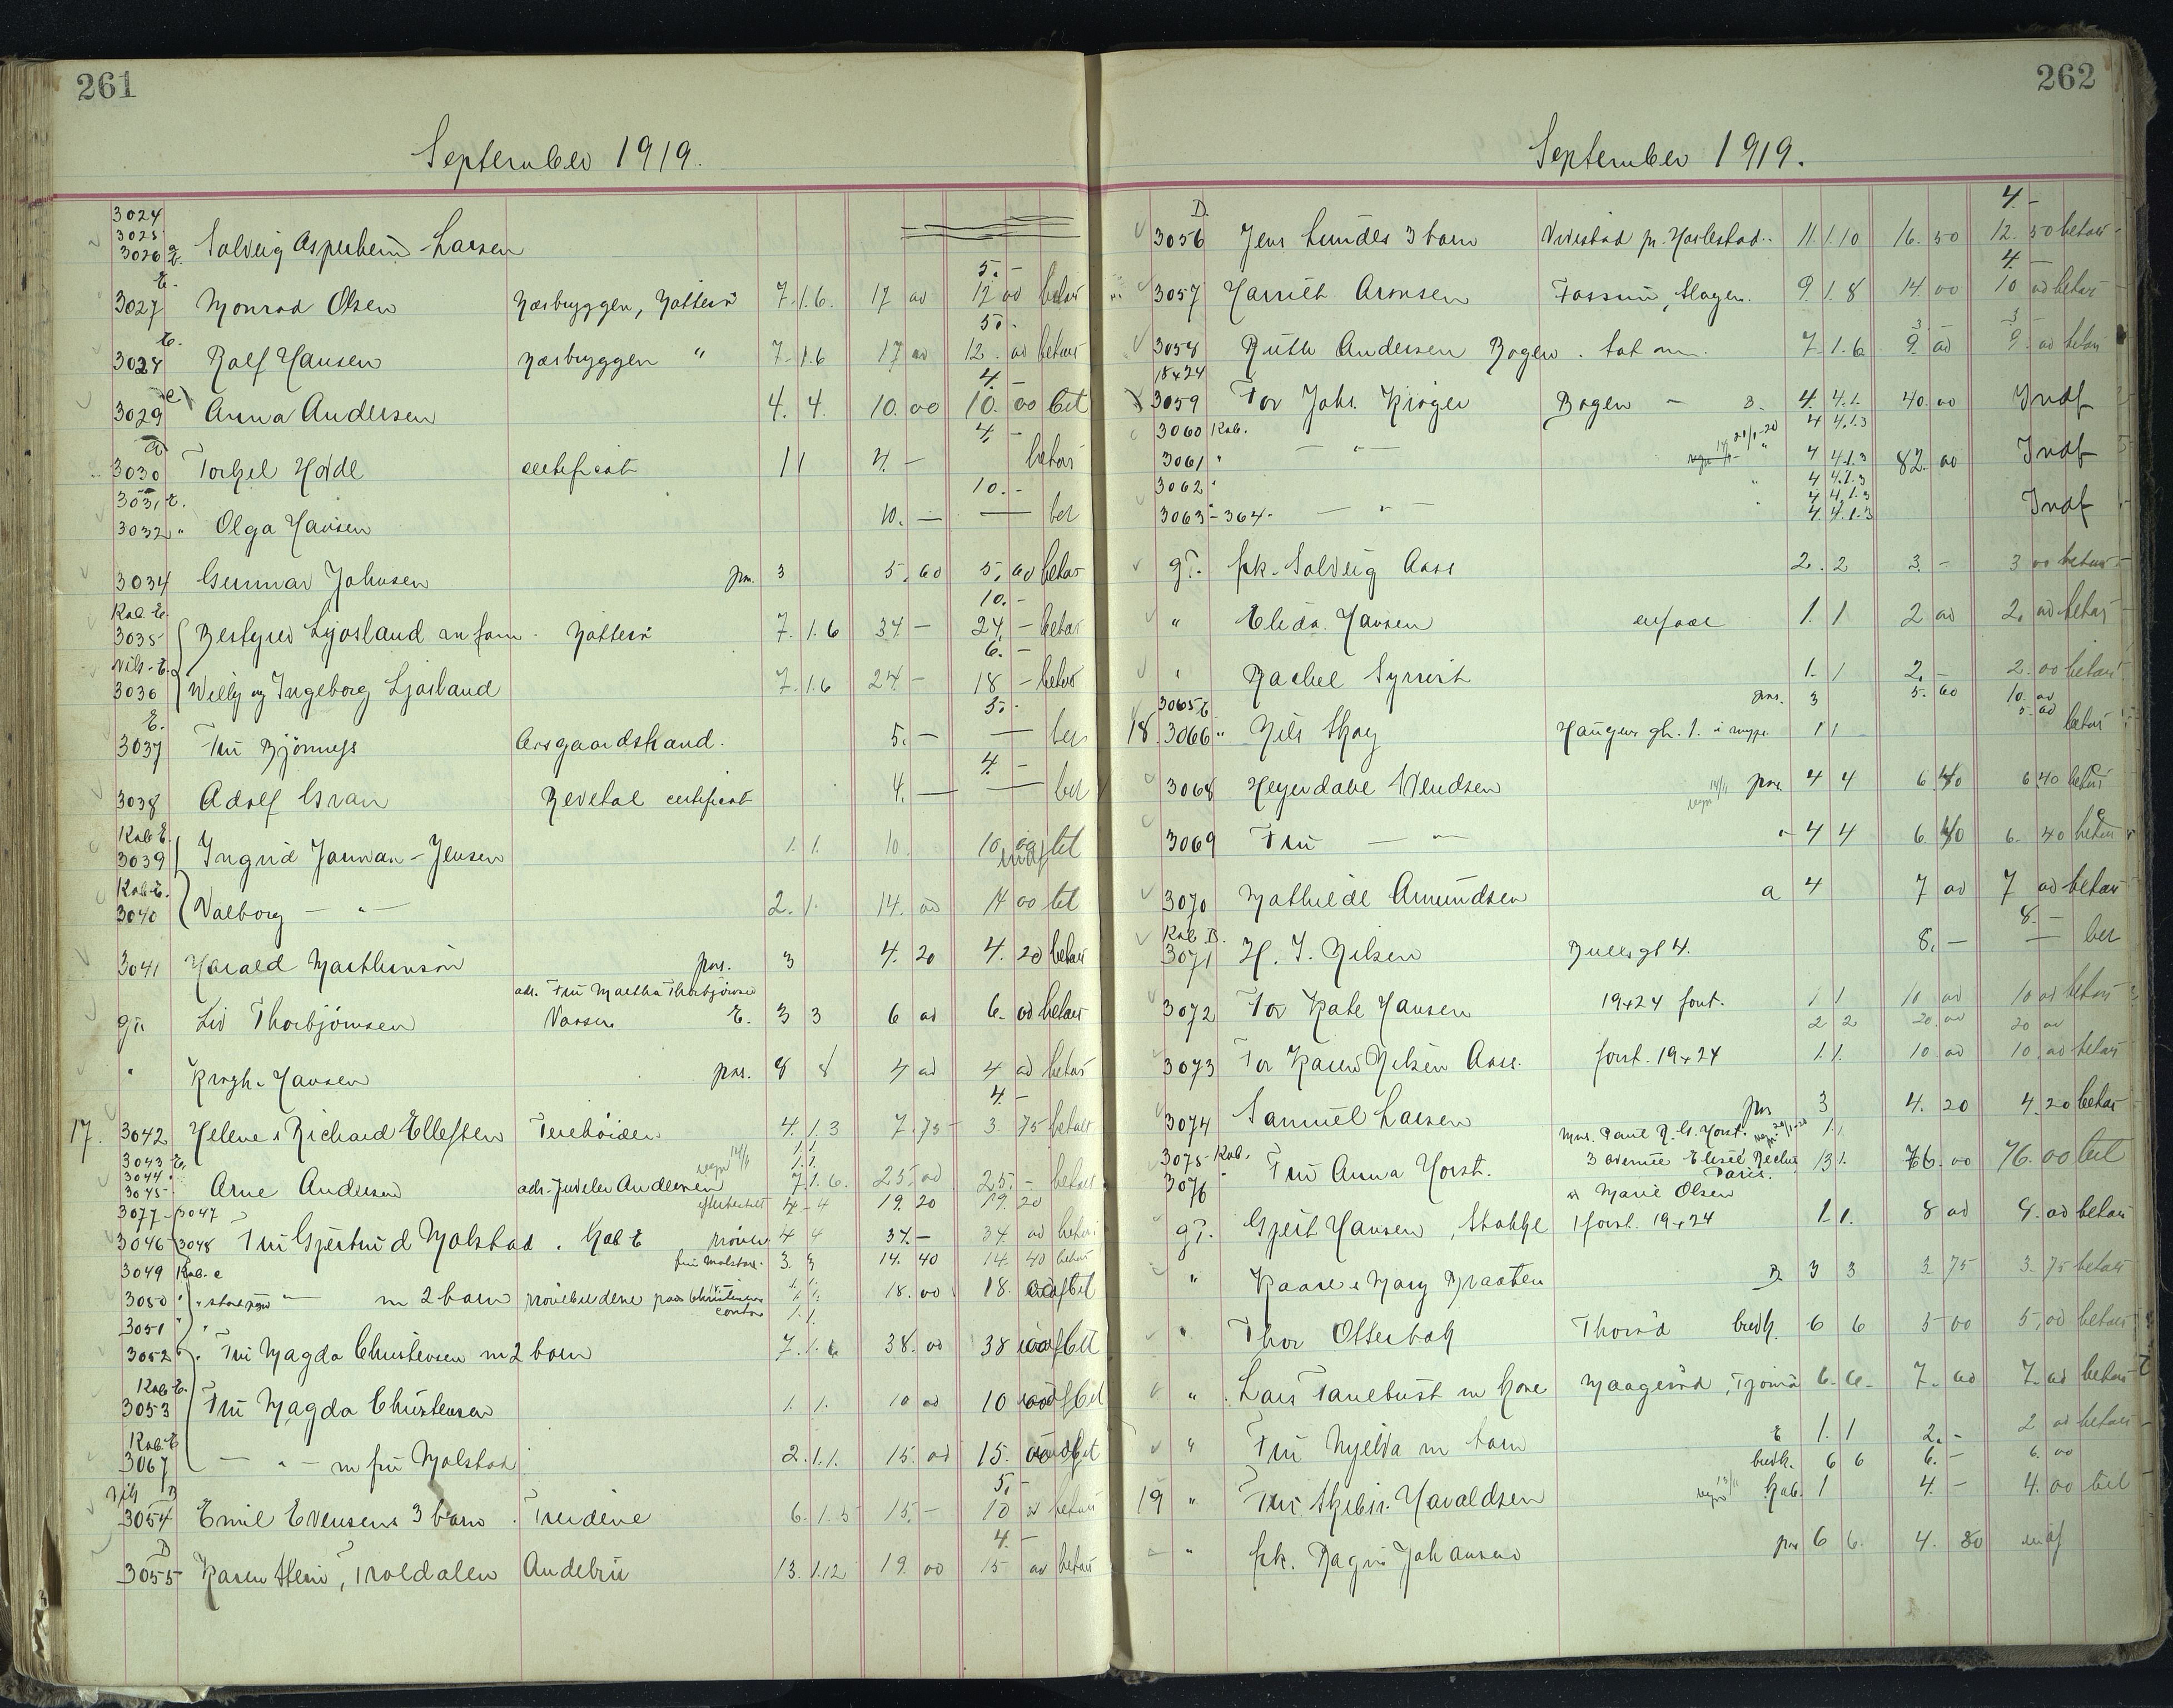 261
September 1919.
3024
3025
3026 E. Solveig Asperheim Larsen
E. 5.-
3027 Monrad Olsen Næsbryggen, Nøtterø 7.1.6. 17 00 12 00 betalt
E. 5.-
3028 Rolf Hansen Næsbryggen " 7.1.6 17 00 12.00 betalt
e) 4.-
3029 Anna Andersen 4. 4. 10.00 10.00 bet
a 4.-
3030 certifikat 11 4.- betalt
3031 E. 10.-
3032 " Olga Hansen 10.- — bet
3034 Gunnar Johnsen pm. 3 5.60 5.60 betalt
Kab. E. 10.-
3035 Bestyrer Ljosland m fam. Nøtterø 7.1.6 34 - 24 - betalt
Vis. E. 6.-
3036 Willy og Ingeborg Ljosland 7.1.6 24 - 18 - betalt
E. 5.-
3037 Fru Bjönness Aasgaardstrand. 5.- — bet
4.-
3038 Adolf Gran Revetal certifikat 4.- — bet
Kab E.
3039 Ingrid Jarman-Jensen 1.1. 10. 10.00 bet
Kab E.
3040 Valborg — " — 2.1. 14.00 14 00 bet
3041 Harald Marthinsen pm. 3 4.20 4.20 betalt
adr. Fru Martha Thorbjörnsen
gr. Liv Thorbjörnsen Vasser E. 3 3 6 00 6.00 betalt
" Krogh-Hansen pm. 8 8 4 00 4 00 betalt
4.-
17. 3042 Helene & Richard Ellefsen Teiehöiden 4.1.3 7.75 3.75 betalt
3043 E. 1.1.
3044 " 1.1.
3045 Arne Andersen adr. Juveler Andersen 7.1.6. 25.00 25.- betalt
3077-3047 efterbestilt 4-4 19.20 19.20
3046-3048 Fru Gjertrud Molstad. Kab E pröver 4 4 34.- 34.00 betalt
3049 Kab. e fru Molstad. 3. 3 14.40 14.40 betalt
3050 " — " — m 2 barn 18.00 18. bet
3051 " 1.1.
3052 " Fru Magda Christensen m 2 barn 7.1.6 38.00 38 bet
Kab-E.
3053 Fru Magda Christensen 1. 1. 10 00 10 bet
Kab-E
3067 — " — m fru Molstad 2.1.1. 15.00 15. bet
5.-
3054 Emil Evensens 3 barn. 6.1.5 15.- 10 00 betalt
D 4.-
3055 Karen Stein, Troldalen Andebu 13.1.12 19.00 15 00 betalt
262
September 1919.
D. 4.-
3056 Jens Lundes 3 barn Vivestad pr. Horlestad. 11.1.10 16.50 12.50 betalt
4.-
3057 Harriet Aronsen Fossum, Slagen. 9.1.8 14.00 10 00 betalt
3 - 3 -
3058 Ruth Andersen Bogen. 7.1.6 9.00 9.00 betalt
18x24
3059 For Johs. Kröger Bogen - 3. 4. 4.1. 40.00 Indf
3060 Kab. 4 4.1.3
3061 " — " — 21/1-20 4 4.1.3 82.00 Indf
3062 " " 4 4.1.3
4 4.1.3
3063-364. — " — 4. 4.1.3 Indf
gr. frk. Solveig Aass 2. 2 3.- 3 00 betalt
" Elida Hansen 1. 1 2 00 2.00 betalt
" Rachel Syrrist 1. 1 2.- 2.00 betalt
3065 E pm. 3 5.60 10.00
5.60
18. 3066 " Nils Skog Haugers gt. 1. 11 betalt
3068 Heyerdahl Knudsen 14/11 pm. 4 4 6.40 6.40 betalt
3069 Fru — " — " 4 4 6.40 6.40 betalt
3070 Mathilde Amundsen a 4 7 00 7 00 betalt
Kab D. 8.-
3071 H. J. Nilsen Bullsgt 4. 8.- — bet
3072 For Kate Hansen 19x24 forst. 1 1 10 00 10 00 betalt
2 2 20.00 20 00
3073 For Karen Nilsen Aass. forst. 19x24 1.1. 10 00 10.00 betalt
3074 Samuel Larsen pm 3 4.20 4.20 betalt
3075 Kab. Mrs. Paul R. G. Horst. 20/1-20 1.1.
Fru Anna Horst. 3 avenue Elisée Reclus 13 1. 76.00 76.00 bet
3076 Paris.
Marie Olsen
gr. Gerit Hansen, Stokke 1 forst. 19x24 1.1. 8 00 8.00 betalt
" Kaare & Mary Braaten B 3 3 3.75 3.75 betalt
" Thor Otterbek Thorsö budk. 6 6 5 00 5.00 betalt
" Lars Tanebust m kone Maagerø, Tjømø 6. 6. 7.00 7.00 betalt
" Fru Mjelva m barn E 1. 1 2.- 2 00 betalt
budk. 6 6 6.- 6.00
19 " Fru Skibsr. Haraldsen 13/11 Kab. 1 4.- 4.00 bet
" frk. Ragna Johansen pm 6 6. 4.80 indf